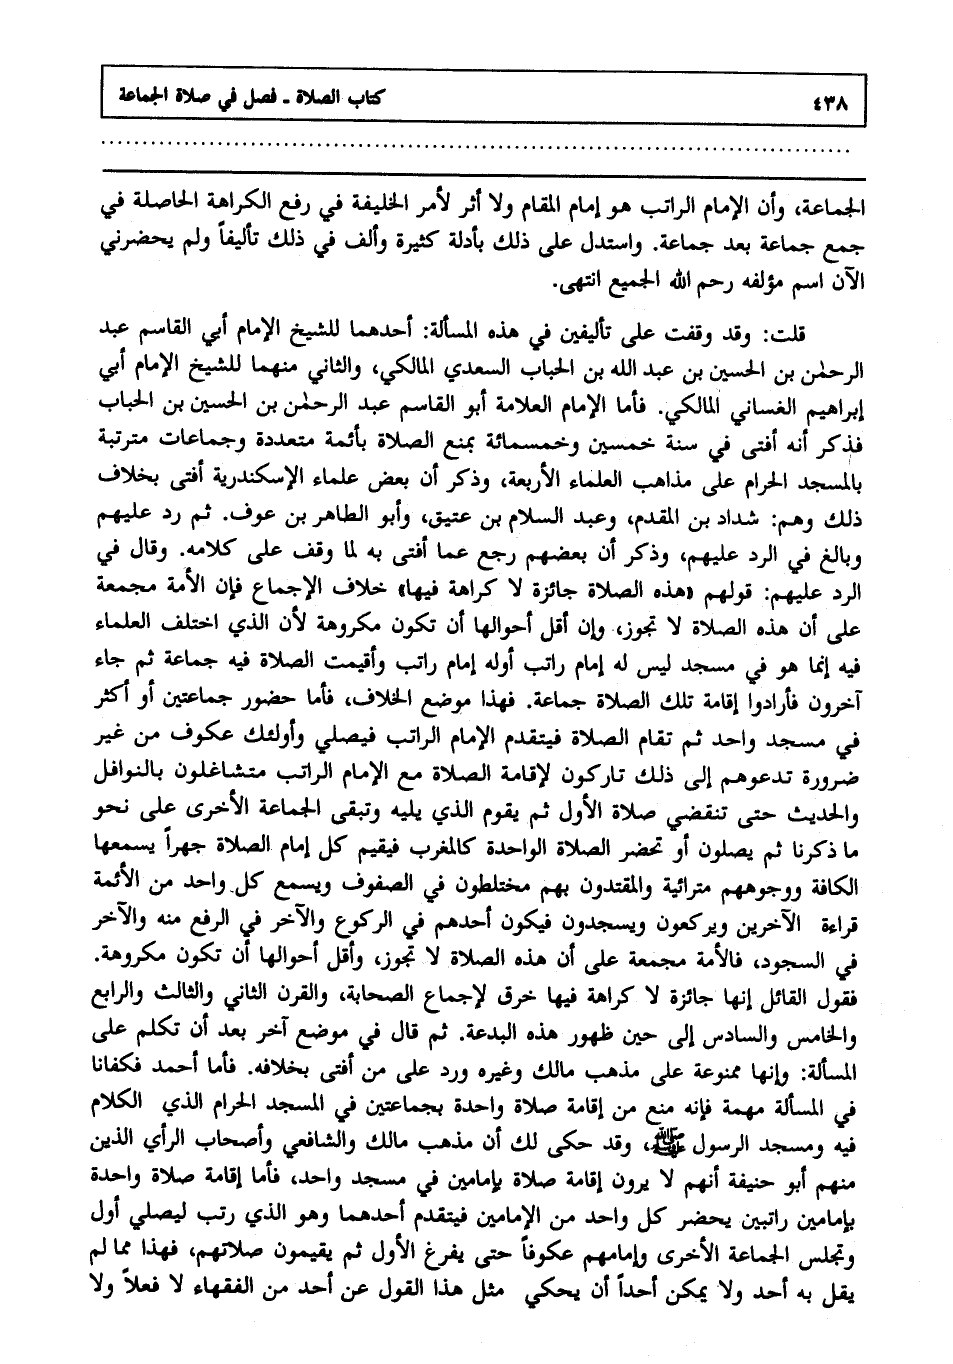 ٤٣٨
كتاب الصلاة ـ فصل في صلاة الجماعة
الجماعة، وأن الإمام الراتب هو إمام المقام ولا أثر لأمر الخليفة في رفع الكراهة الحاصلة في
جمع جماعة بعد جماعة. واستدل على ذلك بأدلة كثيرة وألف في ذلك تأليفاً ولم يحضرني
الآن اسم مؤلفه رحم الله الجميع انتهى.
قلت: وقد وقفت على تأليفين في هذه المسألة: أحدهما للشيخ الإمام أبي القاسم عبد
الرحمٰن بن الحسين بن عبد الله بن الحباب السعدي المالكي، والثاني منهما للشيخ الإمام أبي
إبراهيم الغساني المالكي. فأما الإمام العلامة أبو القاسم عبد الرحمٰن بن الحسين بن الحباب
فذكر أنه أفتى في سنة خمسين وخمسمائة بمنع الصلاة بأئمة متعددة وجماعات مترتبة
بالمسجد الحرام على مذاهب العلماء الأربعة، وذكر أن بعض علماء الإسكندرية أفتى بخلاف
ذلك وهم: شداد بن المقدم، وعبد السلام بن عتيق، وأبو الطاهر بن عوف. ثم رد عليهم
وبالغ في الرد عليهم، وذكر أن بعضهم رجع عما أفتى به لما وقف على كلامه. وقال في
الرد عليهم: قولهم «هذه الصلاة جائزة لا كراهة فيها» خلاف الإجماع فإن الأمة مجمعة
على أن هذه الصلاة لا تجوز، وإن أقل أحوالها أن تكون مكروهة لأن الذي اختلف العلماء
فيه إنما هو في مسجد ليس له إمام راتب أوله إمام راتب وأقيمت الصلاة فيه جماعة ثم جاء
آخرون فأرادوا إقامة تلك الصلاة جماعة. فهذا موضع الخلاف، فأما حضور جماعتين أو أكثر
في مسجد واحد ثم تقام الصلاة فيتقدم الإمام الراتب فيصلي وأولئك عكوف من غير
ضرورة تدعوهم إلى ذلك تاركون لإقامة الصلاة مع الإمام الراتب متشاغلون بالنوافل
والحديث حتى تنقضي صلاة الأول ثم يقوم الذي يليه وتبقى الجماعة الأخرى على نحو
ما ذكرنا ثم يصلون أو تحضر الصلاة الواحدة كالمغرب فيقيم كل إمام الصلاة جهراً يسمعها
الكافة ووجوههم مترائية والمقتدون بهم مختلطون في الصفوف ويسمع كل واحد من الأئمة
قراءة الآخرين ويركعون ويسجدون فيكون أحدهم في الركوع والآخر في الرفع منه والآخر
في السجود، فالأمة مجمعة على أن هذه الصلاة لا تجوز، وأقل أحوالها أن تكون مكروهة.
فقول القائل إنها جائزة لا كراهة فيها خرق لإجماع الصحابة، والقرن الثاني والثالث والرابع
والخامس والسادس إلى حين ظهور هذه البدعة. ثم قال في موضع آخر بعد أن تكلم على
المسألة: وإنها ممنوعة على مذهب مالك وغيره ورد على من أفتى بخلافه. فأما أحمد فكفانا
في المسألة مهمة فإنه منع من إقامة صلاة واحدة بجماعتين في المسجد الحرام الذي الكلام
فيه ومسجد الرسول ﷺ، وقد حكى لك أن مذهب مالك والشافعي وأصحاب الرأي الذين
منهم أبو حنيفة أنهم لا يرون إقامة صلاة بإمامين في مسجد واحد، فأما إقامة صلاة واحدة
بإمامين راتبين يحضر كل واحد من الإمامين فيتقدم أحدهما وهو الذي رتب ليصلي أول
وتجلس الجماعة الأخرى وإمامهم عكوفاً حتى يفرغ الأول ثم يقيمون صلاتهم، فهذا مما لم
يقل به أحد ولا يمكن أحداً أن يحكي مثل هذا القول عن أحد من الفقهاء لا فعلاً ولا